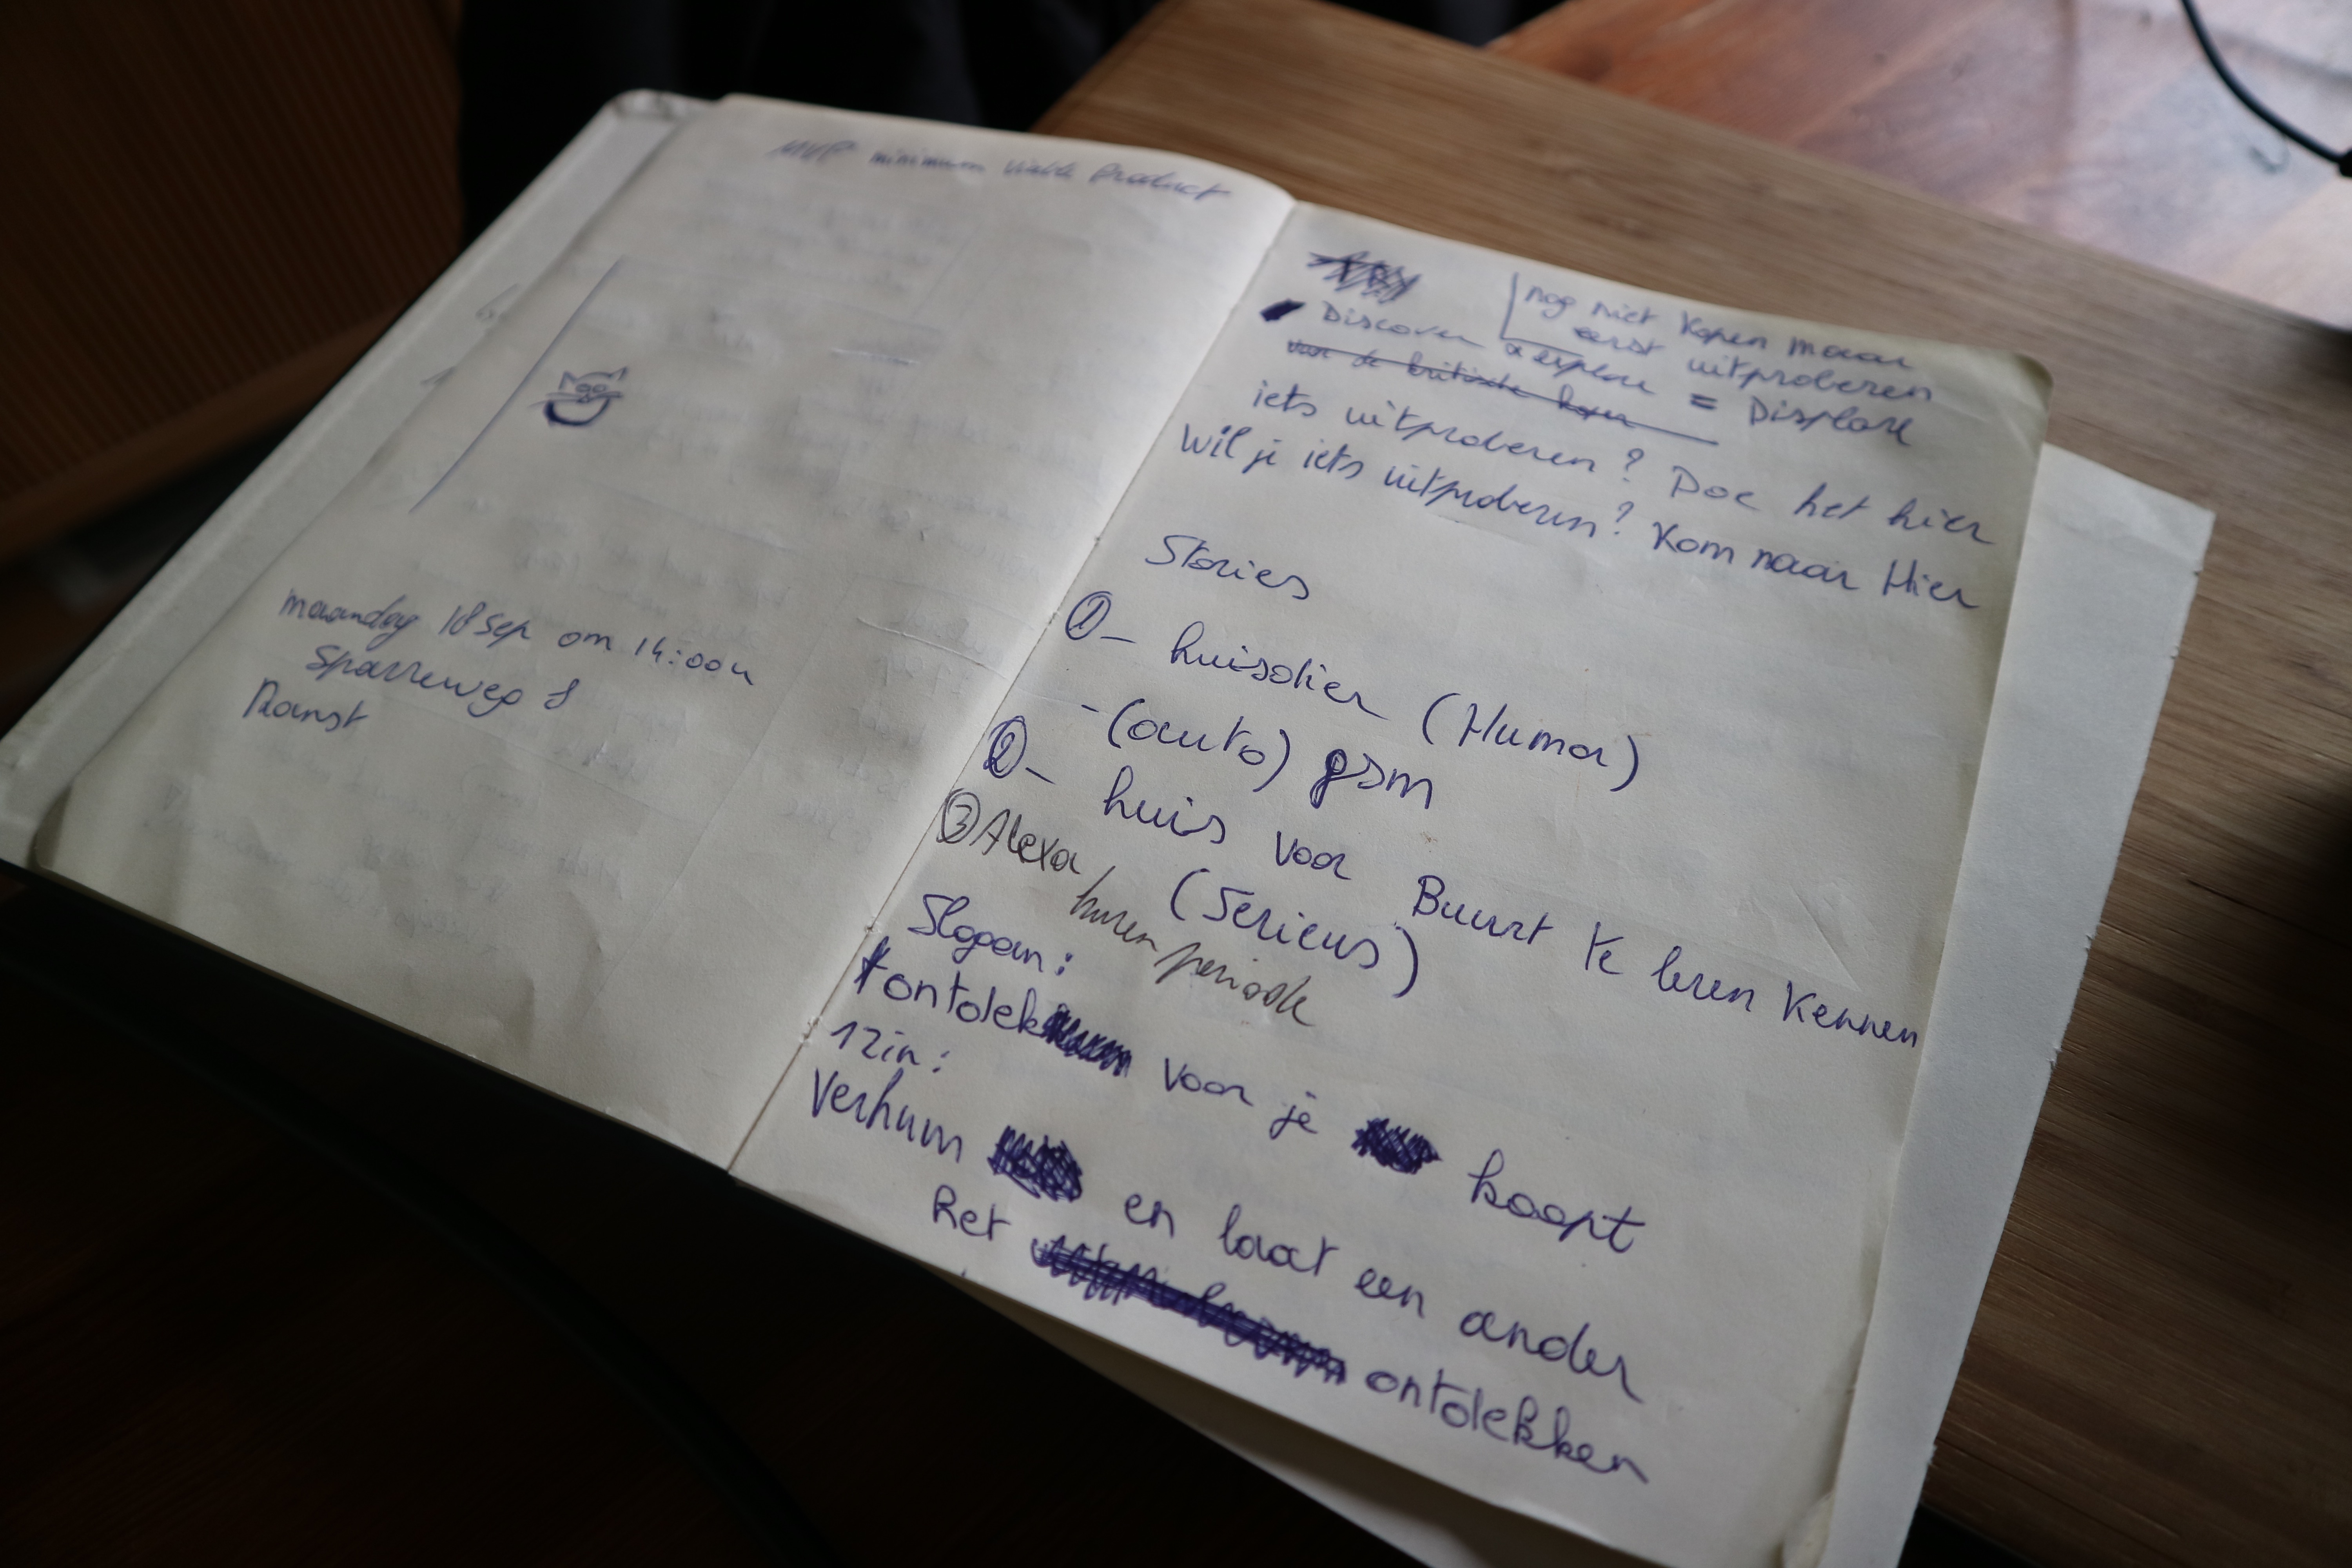 MVP minimum viable Product
maandag 18 sep om 14:00u
Sparreweg 8
Ranst
nog niet kopen maar
eerst uitproberen
Discover & explore = Displore
voor de kritische koper
iets uitproberen? Doe het hier
Wil je iets uitproberen? Kom naar Hier
Stories
① - huisdier (Humor)
- (auto) gsm
② - huis voor Buurt te leren kennen
(Serieus)
③ Alexa
huren periode
Slogan:
ontdek voor je koopt
1 zin:
Verhuur en laat een ander
het ontdekken